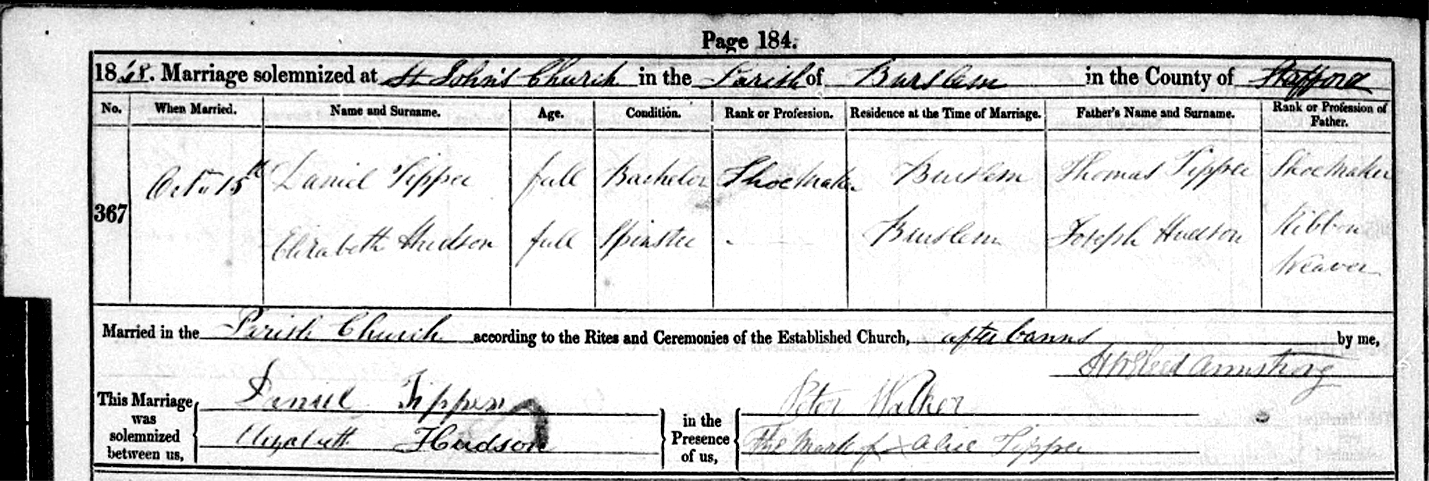 Page 184.
1868. Marriage solemnized at St John's Church in the Parish of Burslem in the County of Stafford
No. When Married. Name and Surname. Age. Condition. Rank or Profession. Residence at the Time of Marriage. Father's Name and Surname. Rank or Profession of Father.
367 Octr 15th Daniel Tipper full Bachelor Shoemaker Burslem Thomas Tipper Shoemaker
Elizabeth Hudson full Spinster Burslem Joseph Hudson Ribbon Weaver
Married in the Parish Church according to the Rites and Ceremonies of the Established Church, after banns by me,
Armstrong
This Marriage was solemnized between us, Daniel Tipper in the Presence of us, Peter Walker
Elizabeth Hudson The Mark of X Alice Tipper